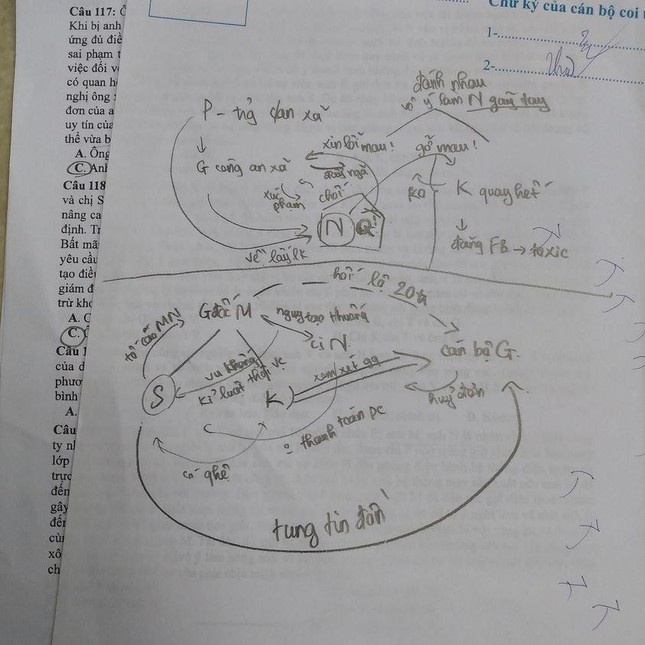 Câu 117:
Khi bị anh
ứng đủ điề
sai phạm t
việc đối v
có quan h
nghị ông
đơn của a
uy tín của
thể vừa b
A. Ông
C. Anh
Câu 118
và chị S
nâng ca
định. Tr
Bất mã
yêu cầu
tạo điều
giám đ
trừ kho
A. G
C.
Câu 1
của d
phươ
bình
A.
Câu
ty nh
lớp
trực
đến
gây
đến
cùn
xô
ch
Chữ ký của cán bộ coi t
1-
2-
đánh nhau
vô ý làm N gãy tay
P - trg dan xã
xin lỗi mau!
gỡ mau!
G công an xã
xúc phạm
chồi
K quay hết
N Q
đăng FB → toxic
về lấy lk
hối lộ 20tr
tố cáo MN
G đốc M
nguỵ tạo
cị N
cán bộ G.
vu khống
kỉ luật
S
K
xem xét gg
huỷ đơn
thanh toán pc
có ghệ
tung tin đồn